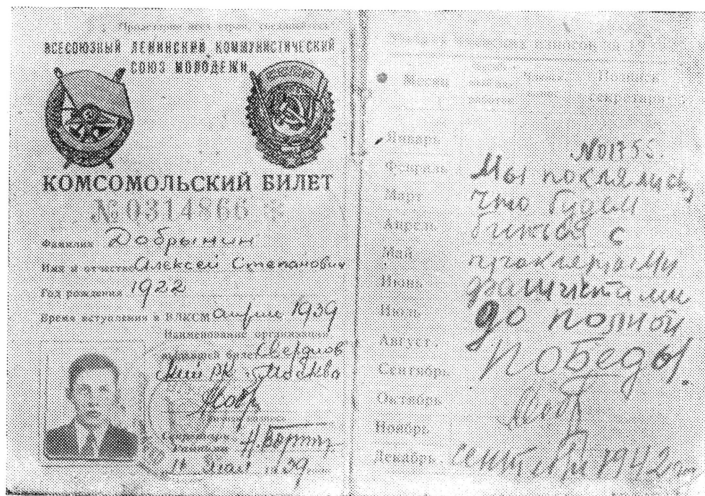 "Пролетарии всех стран, соединяйтесь!"
ВСЕСОЮЗНЫЙ ЛЕНИНСКИЙ КОММУНИСТИЧЕСКИЙ
СОЮЗ МОЛОДЕЖИ
КОМСОМОЛЬСКИЙ БИЛЕТ
№ 0314866
Фамилия Добрынин
Имя и отчество Алексей Степанович
Год рождения 1922
Время вступления в ВЛКСМ апрель 1939
Наименование организации
выдавшей билет Свердлов
ский РК г. Москва
Секретарь
Райкома
членских взносов
Месяц
Подпись
секретаря
Январь
Февраль
Март
Апрель
Май
Июнь
Июль
Август
Сентябрь
Октябрь
Ноябрь
Декабрь
Мы поклялись,
что будем
биться с
проклятыми
фашистами
до полной
победы!
сентябрь 1942